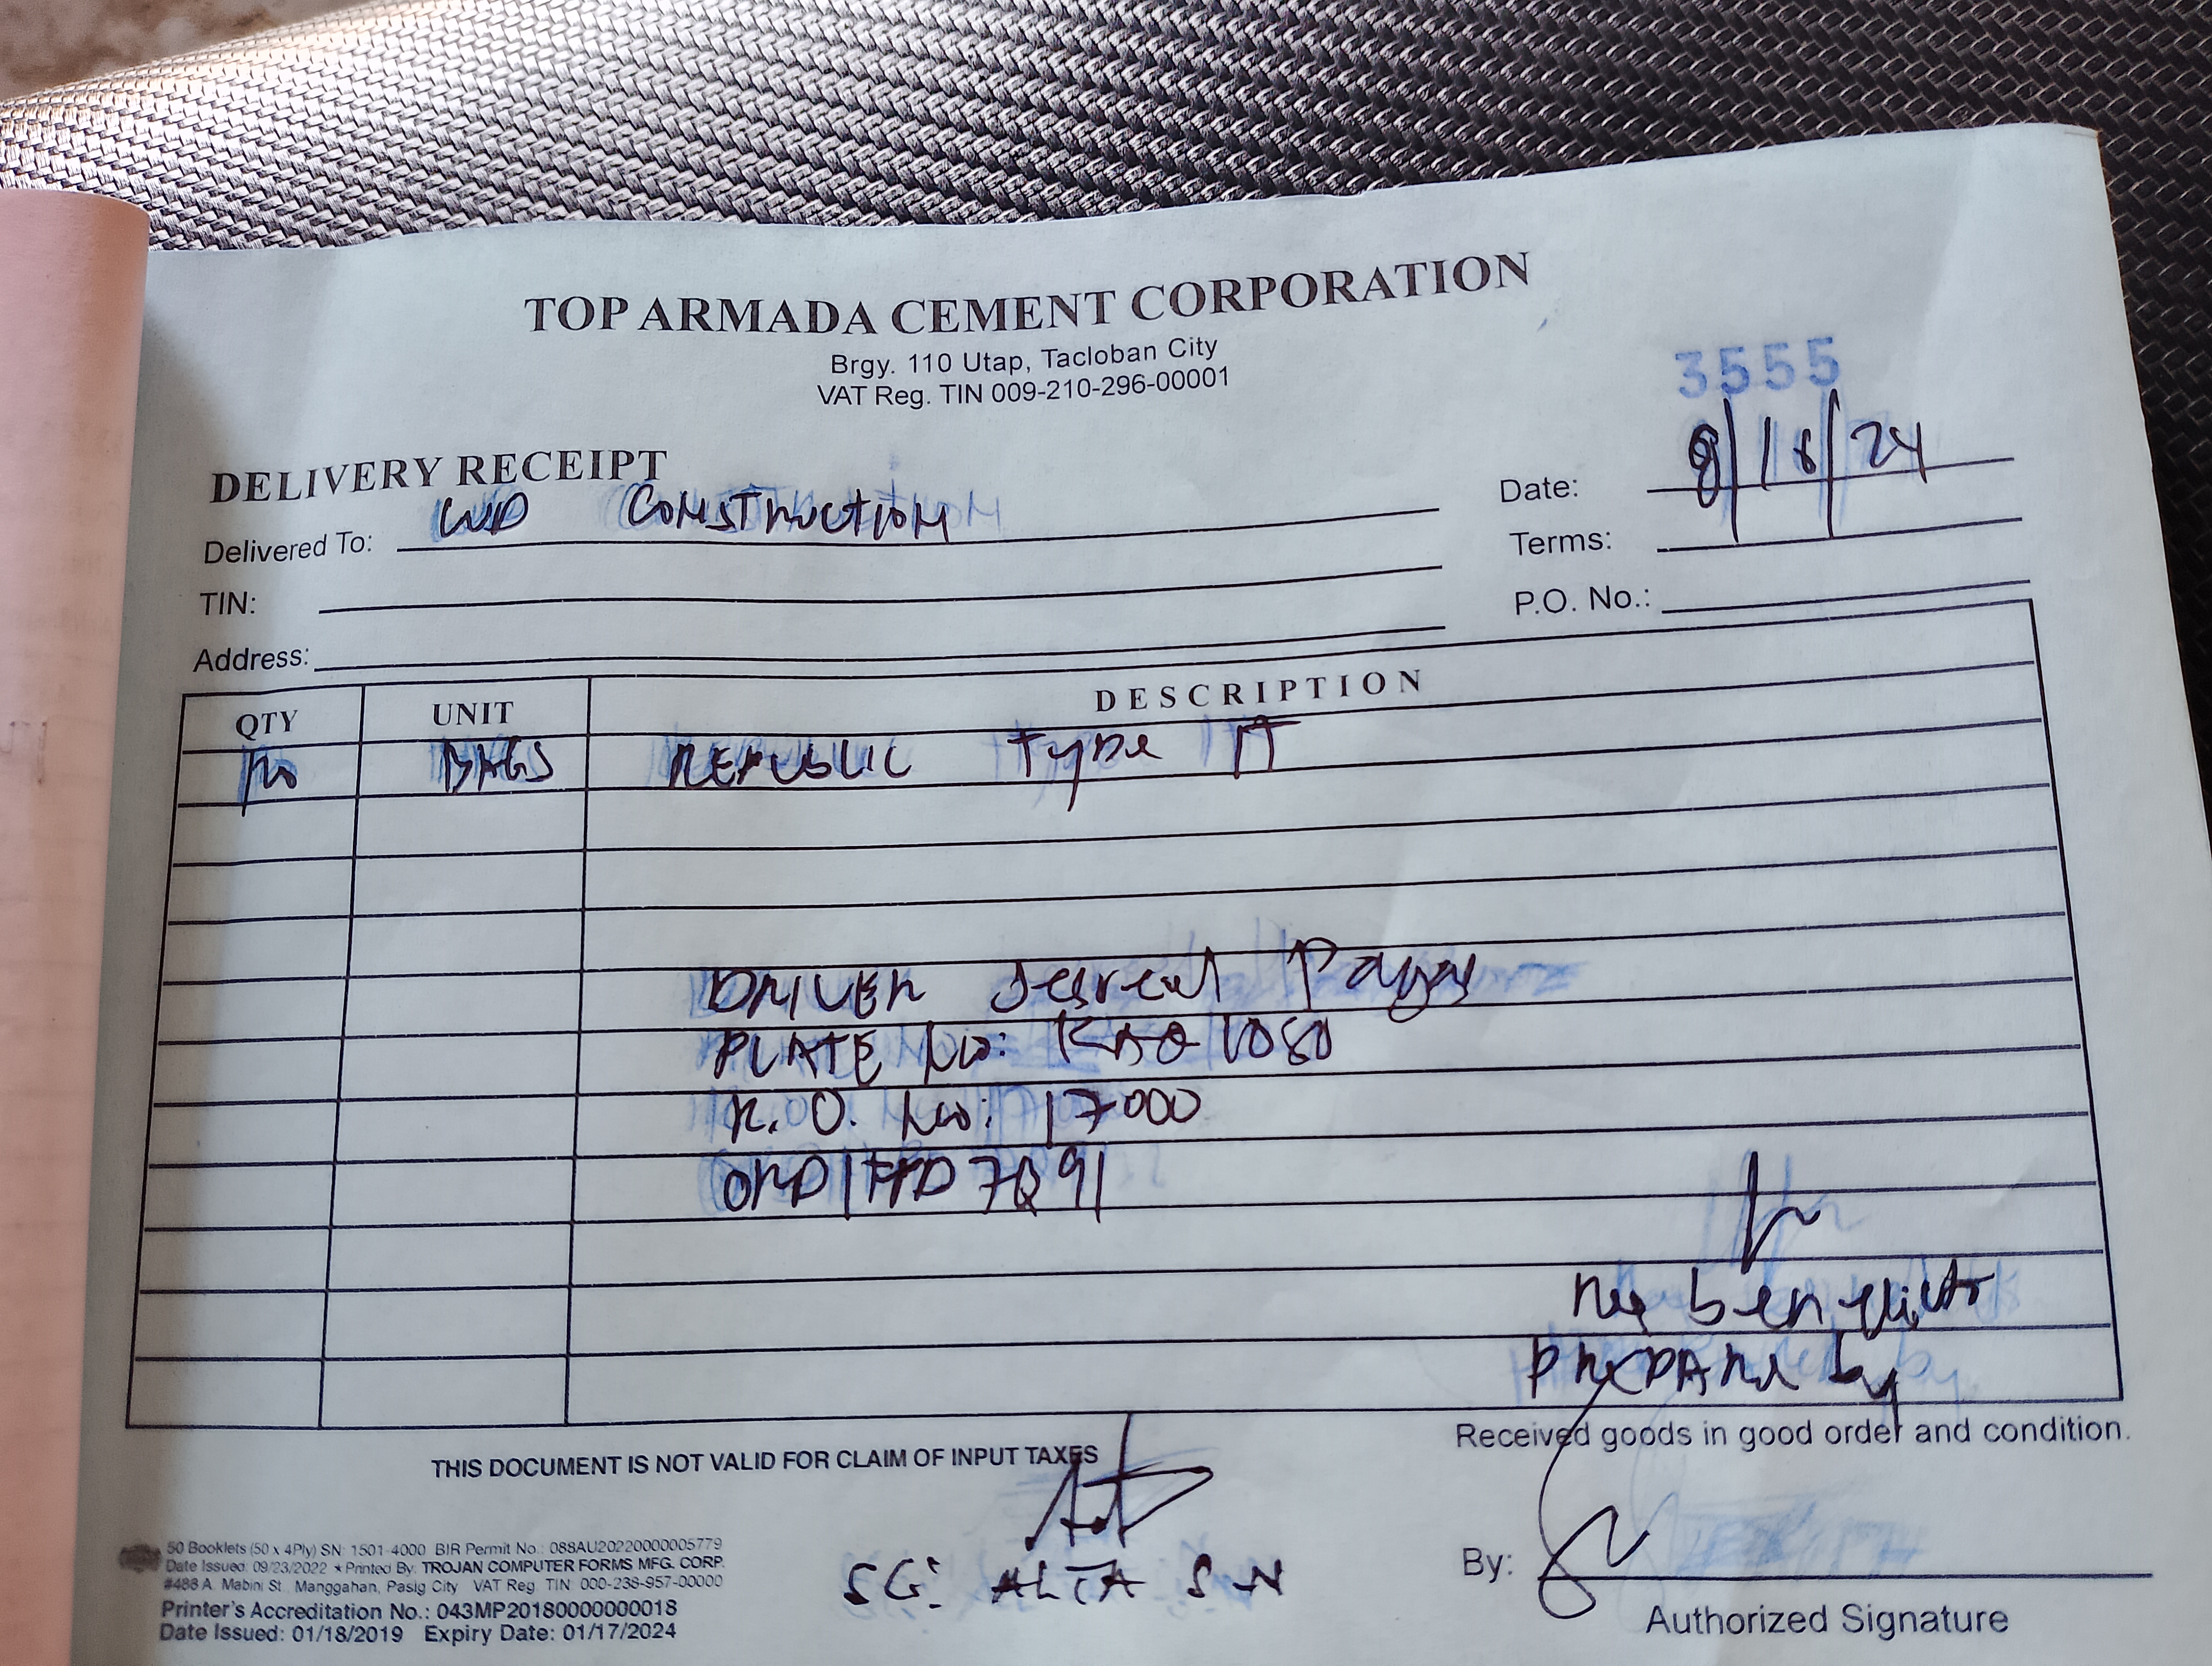 TOP ARMADA CEMENT CORPORATION
Brgy. 110 Utap, Tacloban City
VAT Reg. TIN 009-210-296-00001
3555
DELIVERY RECEIPT
Date: 8/16/24
Delivered To: CONSTRUCTION
Terms:
TIN:
P.O. No.:
Address:
QTY UNIT DESCRIPTION
BAGS REPUBLIC Type
DRIVER
PLATE No:
R.O. No: 17000
PREPARE by
Received goods in good order and condition.
THIS DOCUMENT IS NOT VALID FOR CLAIM OF INPUT TAXES
50 Booklets (50 x 4Ply) SN: 1501-4000 BIR Permit No.: 088AU20220000005779
Date Issued: 09/23/2022 ★ Printed By: TROJAN COMPUTER FORMS MFG. CORP.
#488 A. Mabini St., Manggahan, Pasig City VAT Reg. TIN 000-238-957-00000
Printer's Accreditation No.: 043MP20180000000018
Date Issued: 01/18/2019 Expiry Date: 01/17/2024
SG: ALTA
By:
Authorized Signature